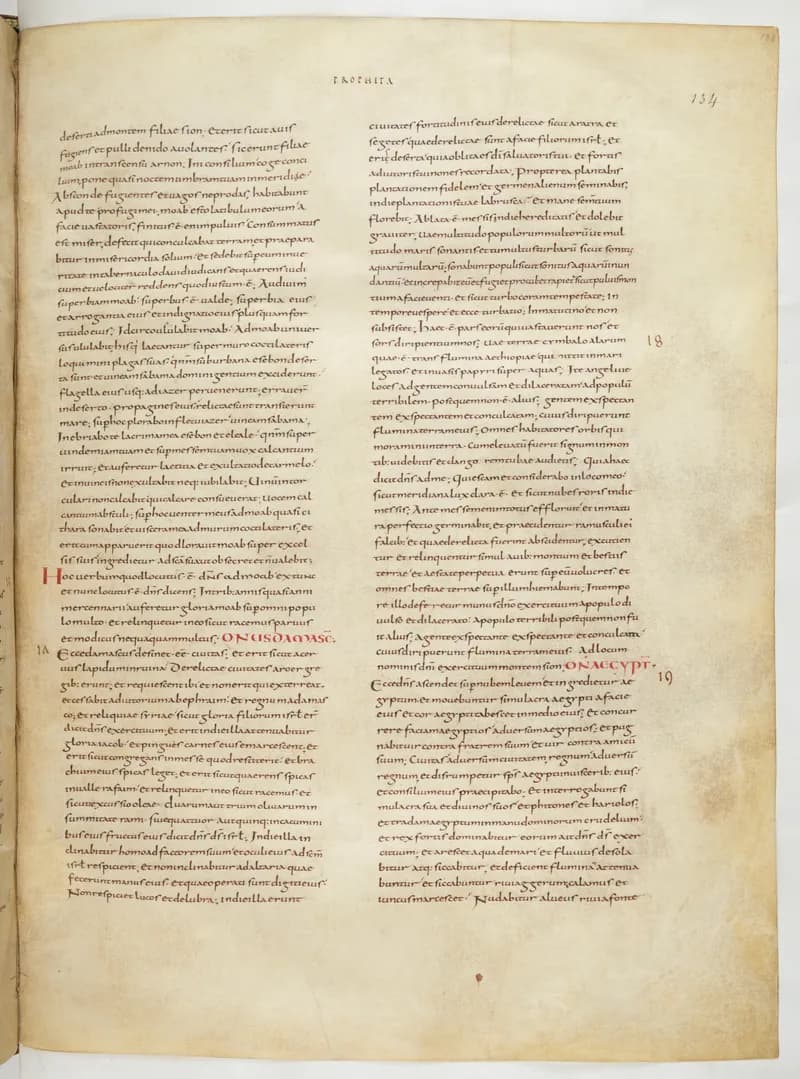 PROPHETA
134
deserti admontem filiae sion · Et erit sicut auis
fugiens et pulli denido auolantes · sic erunt filiae
moab intranscensu arnon; Ini consilium coge conci
lium, pone quasi noctem umbram tuam in meridie;
Absconde fugientes et uagos ne prodas, habitabunt
apud te profugi mei, moab esto latibulum eorum a
facie uastatoris, finitus ē enim puluis · Consummatus
est miser, defecit qui conculcabat terram, et praepara
bitur in misericordia solium · Et sedebit super eum inue
ritate in tabernaculo dauid iudicans et quaerens iudi
cium et uelociter reddens quod iustum ē; Audiuim'
superbiam moab · superbus ē ualde; superbia eius
et arrogantia eius et indignatio eius plusquam for
titudo eius; Idcirco ululabit moab · Ad moab uniuer
sus ululabit; his qi laetantur super muro cocti lateris
loquimini plagas suas · qnm suburbana esebon deser
ta sunt et uineam sabama domini gentium exciderunt ·
flagella eius usq; ad iazer peruenerunt, errauer̄
in deserto · propagines eius relictae sunt transierunt
mare; super hoc plorabo in fletu iazer uineam sabama,
Inebriabo te lacrima mea esebon et eleale · qnm super
uindemiam tuam et super messem tuam uox calcantium
irruit; Et auferetur laetitia et exultatio de carmelo ·
Et in uineis non exultabit neq; iubilabit; Uinum intor
culari non calcabit qui calcare consueuerat; Uocem cal
cantium abstuli; super hoc uenter meus ad moab quasi ci
thara sonabit et uiscera mea ad murum cocti lateris; Et
erit cum apparuerit quod laborauit moab super excel
sis suis ingredietur ad sca sua ut obsecret et n̄ ualebit;
Hoc uerbum quod locutus ē dn̄s ad moab ex tunc
et nunc locutus ē dn̄s dicens; In trib; annis quasi anni
mercennarii auferetur gloria moab super omni popu
lo multo · et relinquetur in eo sicut racemus paruus
et modicus nequaquam multus; ONUS DAMASC;
Ecce damascus desinet ēē ciuitas; et erit sicut acer
uus lapidum in ruina · Derelictae ciuitates aroer gre
gib; erunt; et requiescent ibi et non erit qui exterreat,
et cessabit adiutorium ab ephraim · et regnum a damas
co; et reliquiae syriae sicut gloria filiorum isrł er̄
dicit dn̄s exercituum; et erit in die illa attenuabitur
gloria iacob · et pingues carnes eius emarcescent, et
erit sicut congregans in messe quod resteterit · et bra
chium eius spicas leget; et erit sicut quaerens spicas
in ualle rafaim · et relinquetur in eo sicut racemus et
sicut excussio oleae · duarum aut trium oliuarum in
summitate rami · siue quattuor aut quinq; in cacumini
bus eius fructus eius dicit dn̄s ds̄ isrł; In die illa in
clinabitur homo ad factorem suum et oculi eius ad scm
isrł respicient, et non inclinabitur ad altaria quae
fecerunt manus eius · et quae operati sunt digiti eius ·
Non respiciet lucos et delubra; in die illa erunt
ciuitates fortitudinis eius derelictae sicut aratra et
segetes quae derelictae sunt a facie filiorum isrł; Et
erit deserta quia oblita es di saluatoris tui · Et fortis
adiutoris tui non es recordata; Propterea plantabis
plantationem fidelem et germen alienum seminabis;
in die plantationis tuae labrusca · Et mane semen tuum
florebit; Ablata ē messis in die hereditatis et dolebit
grauiter; Uae multitudo populorum multorū ut mul
titudo maris sonantis et tumultus turbarū sicut sonitus
aquarū multarū; sonabunt populi sicut sonitus aquarū inun
dantiū · Et increpabit eū et fugiet procul et rapietur sicut puluis mon
tium a facie uenti · et sicut turbo coram tempestate; In
tempore uespere et ecce turbatio; In matutino et non
subsistet; Haec ē pars eorū qui uastauerunt nos et
sors diripientium nos; Uae terrae cymbalo alarum
18
quae ē trans flumina aethiopiae qui mittit in mari
legatos et in uasis papyri super aquas; Ite angeli ue
loces ad gentem conuulsam et dilaceratam · ad populū
terribilem · post quem non ē alius; gentem expectan
tem expectantem et conculcatam, cuius diripuerunt
flumina terram eius; Omnes habitatores orbis qui
moramini in terra · Cum eleuatū fuerit signum in mon
tib; uidebitis et clangorem tubae audietis; Quia haec
dicit dn̄s ad me; Quiescam et considerabo in loco meo ·
sicut meridiana lux clara ē · Et sicut nubes roris in die
messis; Ante messem enim totus effloruit et inmatu
ra perfectio germinabit, et praecidentur ramusculi ei'
falcib; et quae derelicta fuerint abscidentur, excutien
tur et relinquentur simul auib; montium et bestiis
terrae · et aestate perpetua erunt super eū uolucres et
omnes bestiae terrae super illum hiemabunt; In tempo
re illo deferetur munus dn̄o exercituum a populo di
uulso et dilacerato · A populo terribili post quem non fu
it alius; A gente expectante expectante et conculcata
cuius diripuerunt flumina terram eius · Ad locum
nominis dn̄i exercituum montem sion; ON AEGYPT ·
19
Ecce dn̄s ascendet super nubem leuem et ingredietur ae
gyptum · et mouebuntur simulacra aegypti a facie
eius et cor aegypti tabescet in medio eius; Et concur
rere faciam aegyptios aduersum aegyptios; et pug
nabit uir contra fratrem suum et uir contra amicū
suum; Ciuitas aduersum ciuitatem regnum aduersū
regnum, et disrumpetur sps aegypti in uisceribus eius ·
et consilium eius praecipitabo, Et interrogabunt si
mulacra sua et diuinos suos et phitones et hariolos;
et tradam aegyptum in manu dominorum crudelium ·
et rex fortis dominabitur eorum ait dn̄s ds̄ exer
cituum; et arescet aqua de mari et fluuius desola
bitur atq; siccabitur, et deficient flumina · Attenua
buntur et siccabuntur riui aggerum; calamus et
iuncus marcescet · Nudabitur alueus riui a fonte